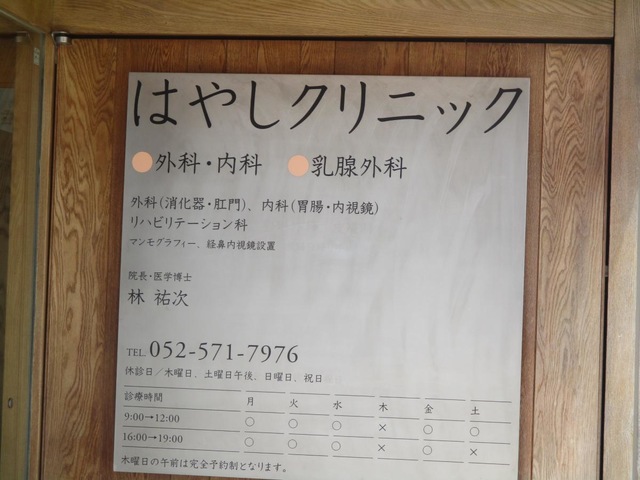 はやしクリニック
外科・内科 乳腺外科
外科(消化器・肛門)、内科(胃腸・内視鏡)
リハビリテーション科
マンモグラフィー、経鼻内視鏡設置
院長・医学博士
林 祐次
TEL. 052-571-7976
休診日/木曜日、土曜日午後、日曜日、祝日
診療時間 月 火 水 木 金 土
9:00→12:00 ○ ○ ○ × ○ ○
16:00→19:00 ○ ○ ○ × ○ ×
木曜日の午前は完全予約制となります。